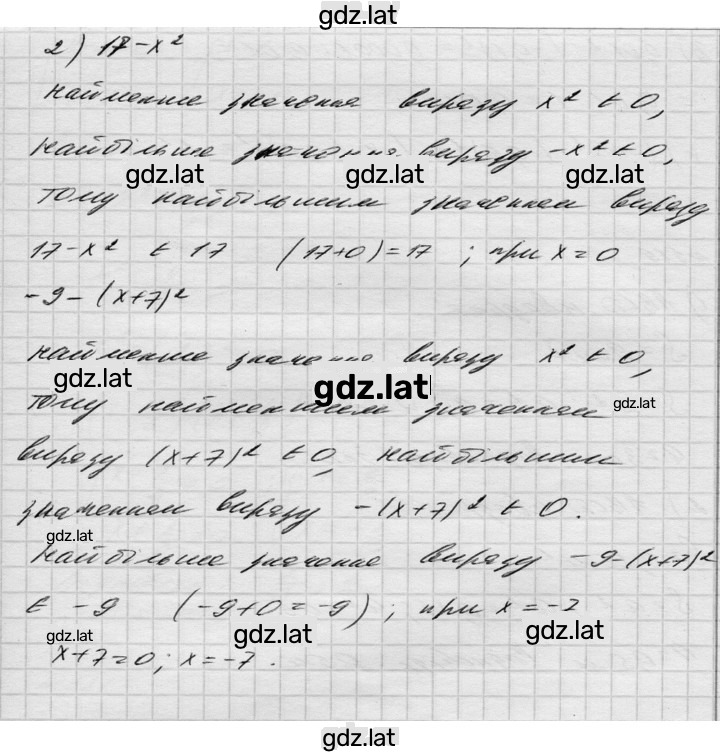 gdz.lat
2) 17-x²
найменше значення виразу x² є 0,
найбільше значення виразу -x² є 0,
gdz.lat gdz.lat gdz.lat
тому найбільшим значенням виразу
17-x² є 17 (17+0)=17 ; при x=0
-9-(x+7)²
найменше значення виразу x² є 0,
gdz.lat gdz.lat gdz.lat
тому найменшим значенням
виразу (x+7)² є 0, найбільшим
значенням виразу -(x+7)² є 0.
gdz.lat
найбільше значення виразу -9-(x+7)²
є -9 (-9+0=-9) ; при x=-7
gdz.lat gdz.lat gdz.lat
x+7=0; x=-7.
gdz.lat